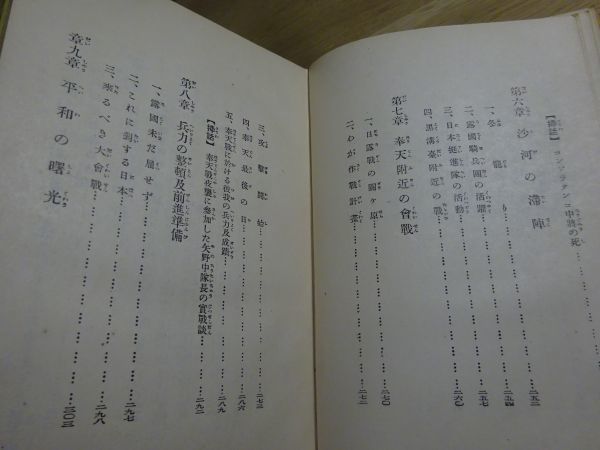 【挿話】コンドラテンコ中將の死
第六章 沙河の滯陣
一、冬籠り……二五二
二、露國騎兵團の活躍……二五四
三、日本挺進隊の活動……二五七
四、黒溝臺附近の戰……二六〇
第七章 奉天附近の會戰
一、日露戰の關ヶ原……二七〇
二、わが作戰計畫……二七二
三、攻擊開始……二七三
四、奉天最後の日……二八六
五、奉天戰に於ける彼我の兵力及成蹟……二八九
【挿話】奉天戰夜襲に參加した矢野中隊長の實戰談……二九二
第八章 兵力の整頓及前進準備
一、露國未だ屈せず……二九七
二、これに對する日本……二九八
三、來るべき大會戰
第九章 平和の曙光……三〇三